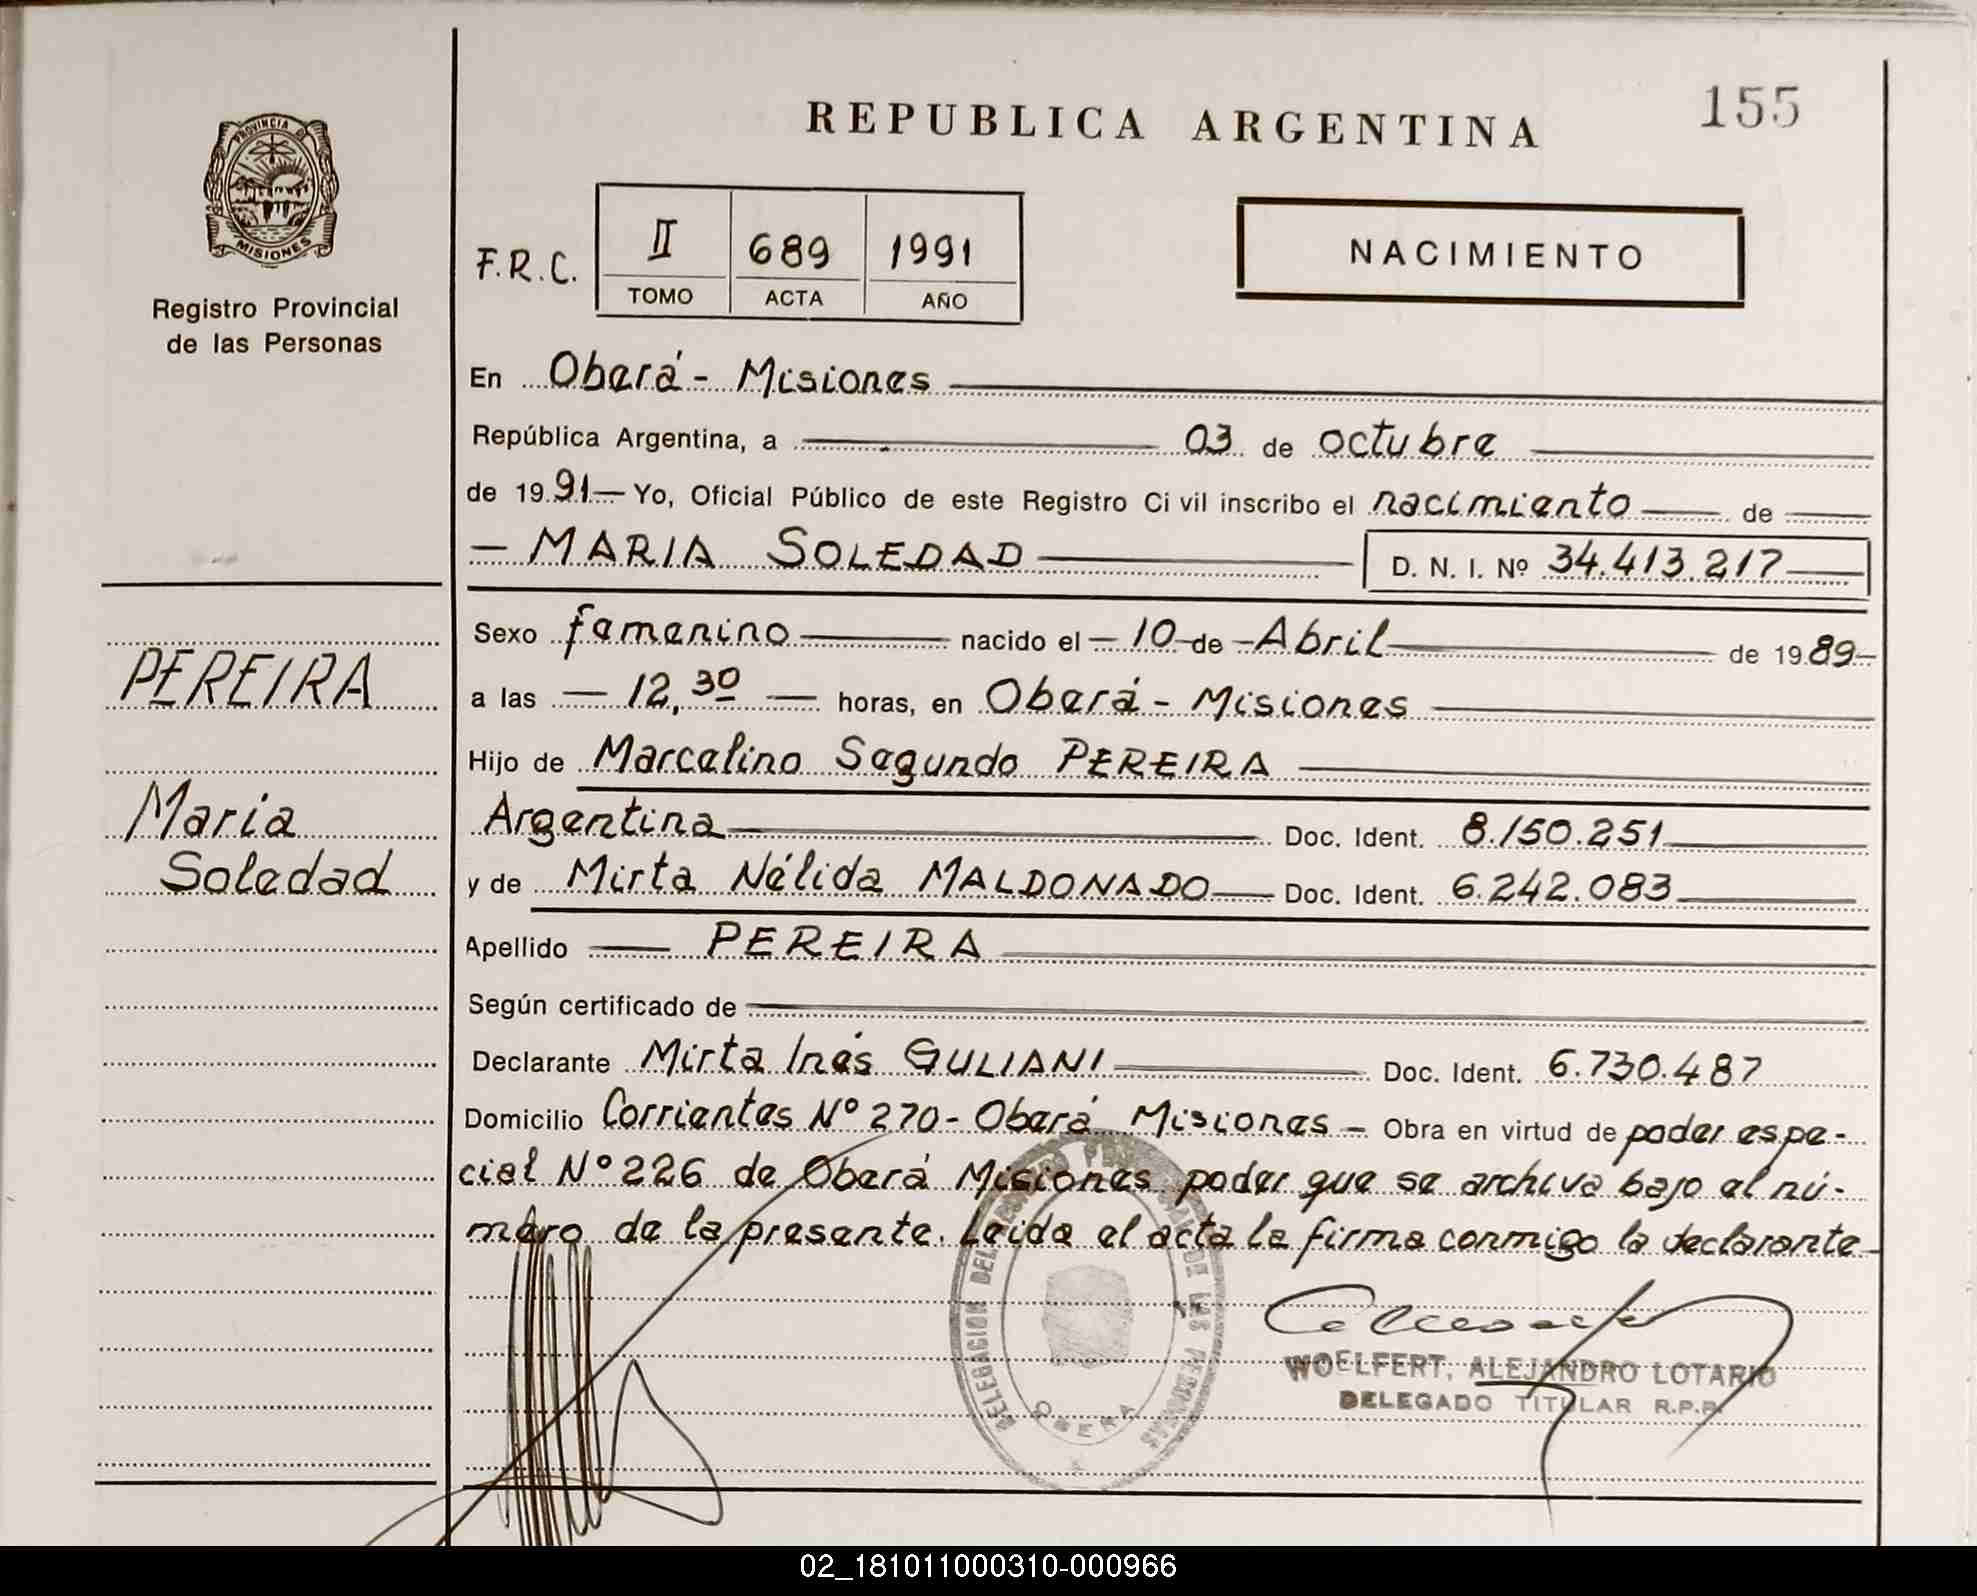 REPUBLICA ARGENTINA
155
PROVINCIA DE
MISIONES
Registro Provincial
de las Personas
F.R.C.
II 689 1991
TOMO ACTA AÑO
NACIMIENTO
En Oberá - Misiones
República Argentina, a 03 de octubre
de 1991 Yo, Oficial Público de este Registro Ci vil inscribo el nacimiento de
MARIA SOLEDAD D. N. I. Nº 34.413.217
Sexo femenino nacido el 10 de Abril de 1989
a las 12,30 horas, en Oberá - Misiones
Hijo de Marcelino Segundo PEREIRA
Argentina Doc. Ident. 8.150.251
y de Mirta Nélida MALDONADO Doc. Ident. 6.242.083
Apellido PEREIRA
Según certificado de
Declarante Mirta Inés GULIANI Doc. Ident. 6.730.487
Domicilio Corrientes Nº 270 - Oberá Misiones - Obra en virtud de poder espe-
cial Nº 226 de Oberá Misiones poder que se archiva bajo el nú-
mero de la presente. Leida el acta la firma conmigo la declarante
PEREIRA
Maria
Soledad
DELEGACION DEL DE LAS PERSONAS
OBERA
WOELFERT, ALEJANDRO LOTARIO
DELEGADO TITULAR R.P.P.
02_181011000310-000966